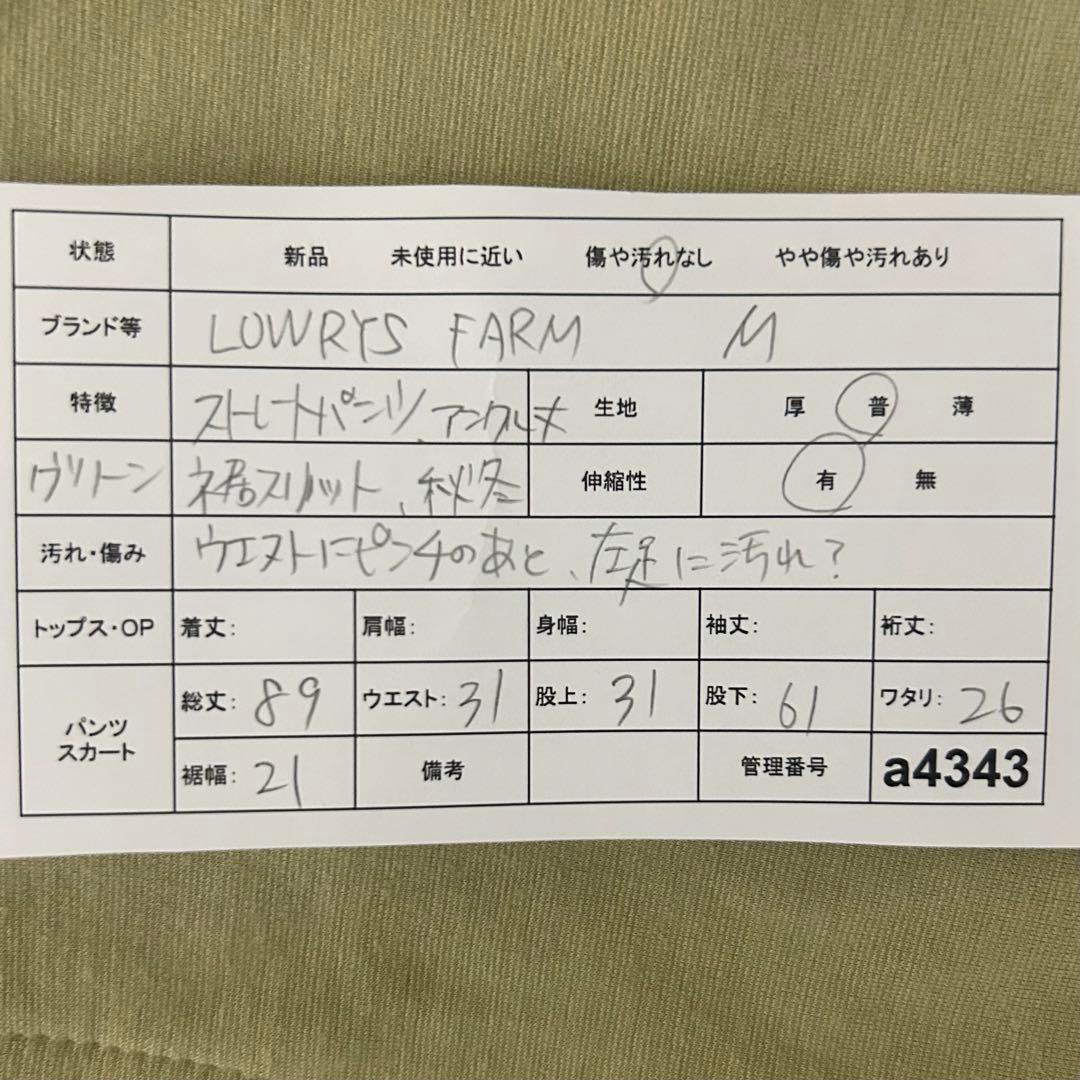 状態 新品 未使用に近い 傷や汚れなし やや傷や汚れあり
ブランド等 LOWRYS FARM M
特徴 ストレートパンツ、アンクル丈 生地 厚 普 薄
グリーン 裾スリット、秋冬 伸縮性 有 無
汚れ・傷み ウエストにピンチのあと、左足に汚れ?
トップス・OP 着丈: 肩幅: 身幅: 袖丈: 裄丈:
パンツ
スカート
総丈: 89 ウエスト: 31 股上: 31 股下: 61 ワタリ: 26
裾幅: 21 備考 管理番号 a4343